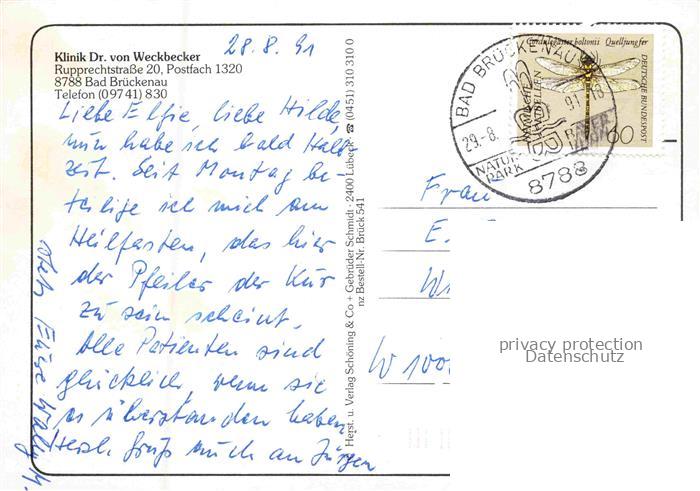 28.8.91
Klinik Dr. von Weckbecker
Rupprechtstraße 20, Postfach 1320
8788 Bad Brückenau
Telefon (09741) 830
Liebe Elfie, liebe Hilde,
nun habe ich bald Halb
zeit. Seit Montag be-
teilige ich mich am
Heilfasten, das hier
der Pfeiler der Kur
zu sein scheint.
Alle Patienten sind
glücklich, wenn sie
es überstanden haben.
Herzl. Gruß auch an Jürgen
Eure Wally M.
Herst. u. Verlag Schöning & Co + Gebrüder Schmidt · 2400 Lübeck ☎ (0451) 310 310 0
nz Bestell-Nr. Brück 541
Cordulegaster boltonii Quelljungfer
DEUTSCHE BUNDESPOST
60
BAD BRÜCKENAU
29.-8.
91-18
NATUR
PARK
8788
Frau
E.
W 100
privacy protection
Datenschutz